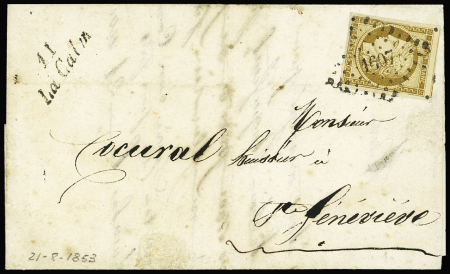 11
La Calm
1607
Monsieur
Cocural huissier à
Ste Géneviève
21-8-1853